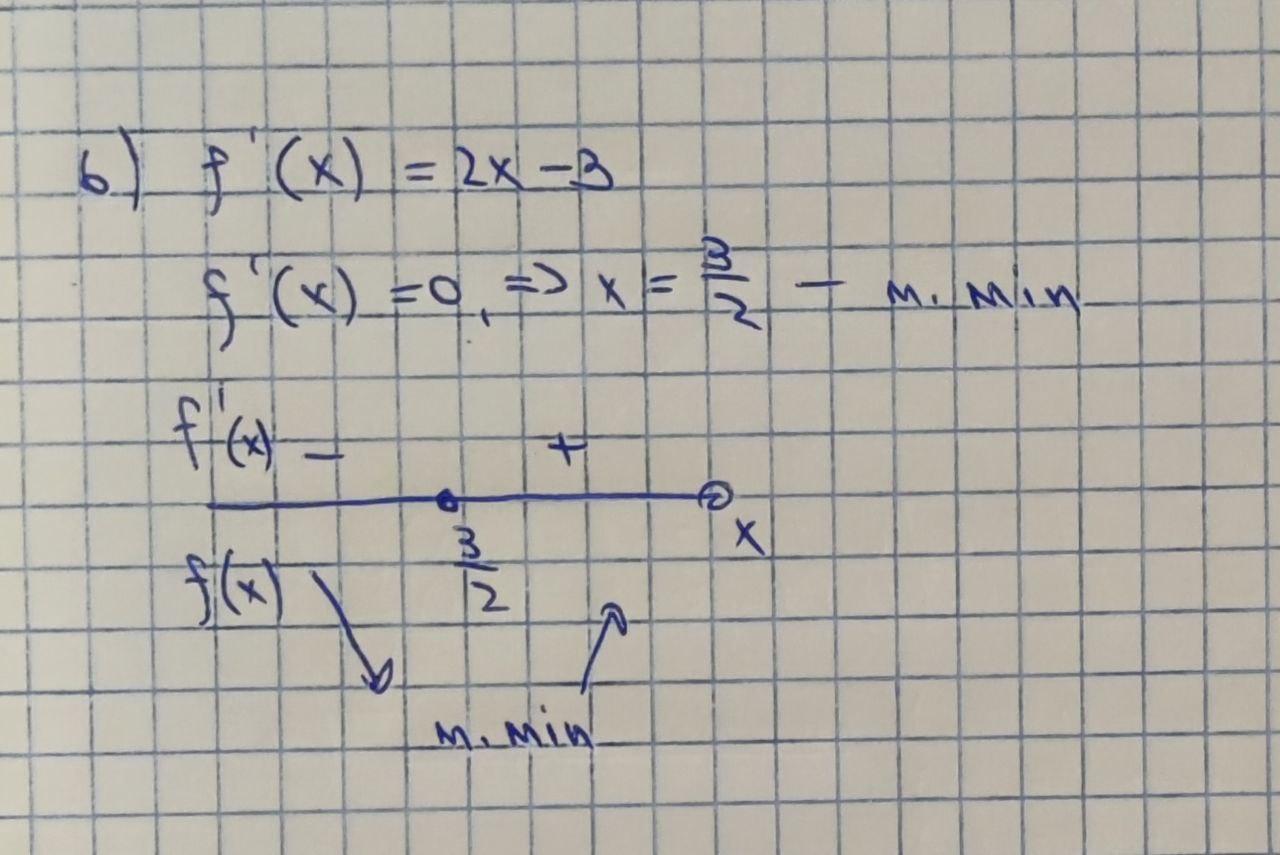 б) f'(x) = 2x - 3
f'(x) = 0, => x = 3/2 - т. min
f'(x) - +
3/2 x
f(x)
т. min